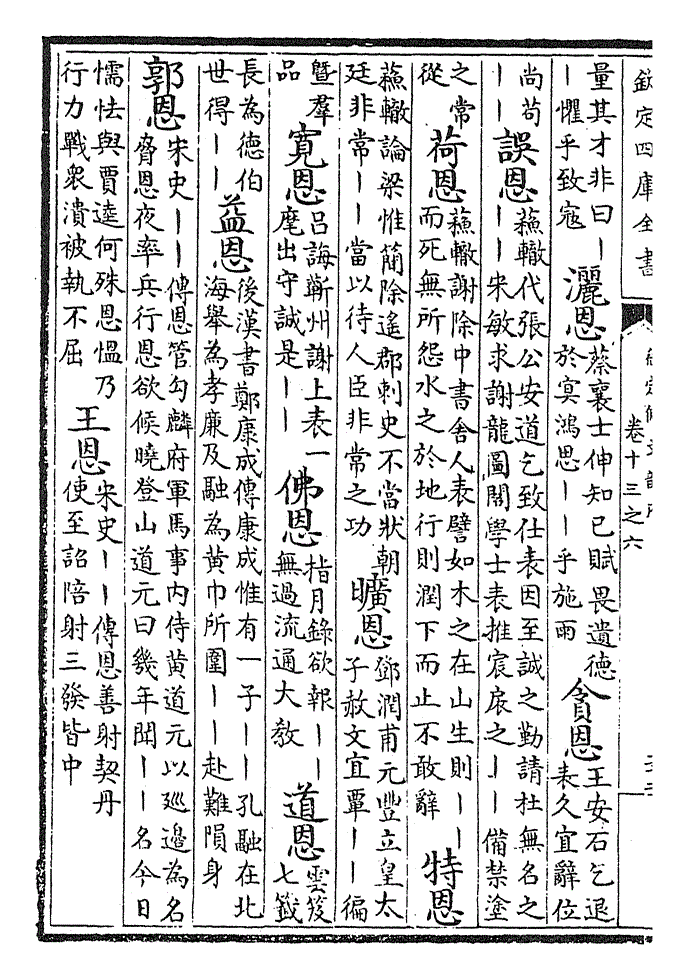 欽定四庫全書
卷十三之六
量其才非曰丨
丨懼乎致寇
灑恩
蔡襄士伸知已賦畏遺德
於㝠鴻恩丨丨乎施雨
貪恩
王安石乞退
表久宜辭位
尚苟
丨丨
誤恩
蘓轍代張公安道乞致仕表因至誠之勤請杜無名之
丨丨宋敏求謝龍圖閣學士表推宸扆之丨丨備禁塗
之常
從
荷恩
蘓轍謝除中書舍人表譬如木之在山生則丨丨
而死無所怨水之於地行則潤下而止不敢辭
特恩
蘓轍論梁惟簡除遙郡刺史不當狀朝
廷非常丨丨當以待人臣非常之功
曠恩
鄧潤甫元豐立皇太
子赦文宜覃丨丨徧
曁羣
品
寛恩
吕誨蘄州謝上表一
麾出守誠是丨丨
佛恩
指月錄欲報丨丨
無過流通大敎
道恩
雲笈
七籖
長為德伯
世得丨丨
益恩
後漢書鄭康成傳康成惟有一子丨丨孔融在北
海舉為孝廉及融為黄巾所圍丨丨赴難隕身
郭恩
宋史丨丨傳恩管勾麟府軍馬事内侍黄道元以廵邊為名
脅恩夜率兵行恩欲候曉登山道元曰幾年聞丨丨名今日
懦怯與賈逵何殊恩愠乃
行力戰衆潰被執不屈
王恩
宋史丨丨傳恩善射契丹
使至詔陪射三發皆中